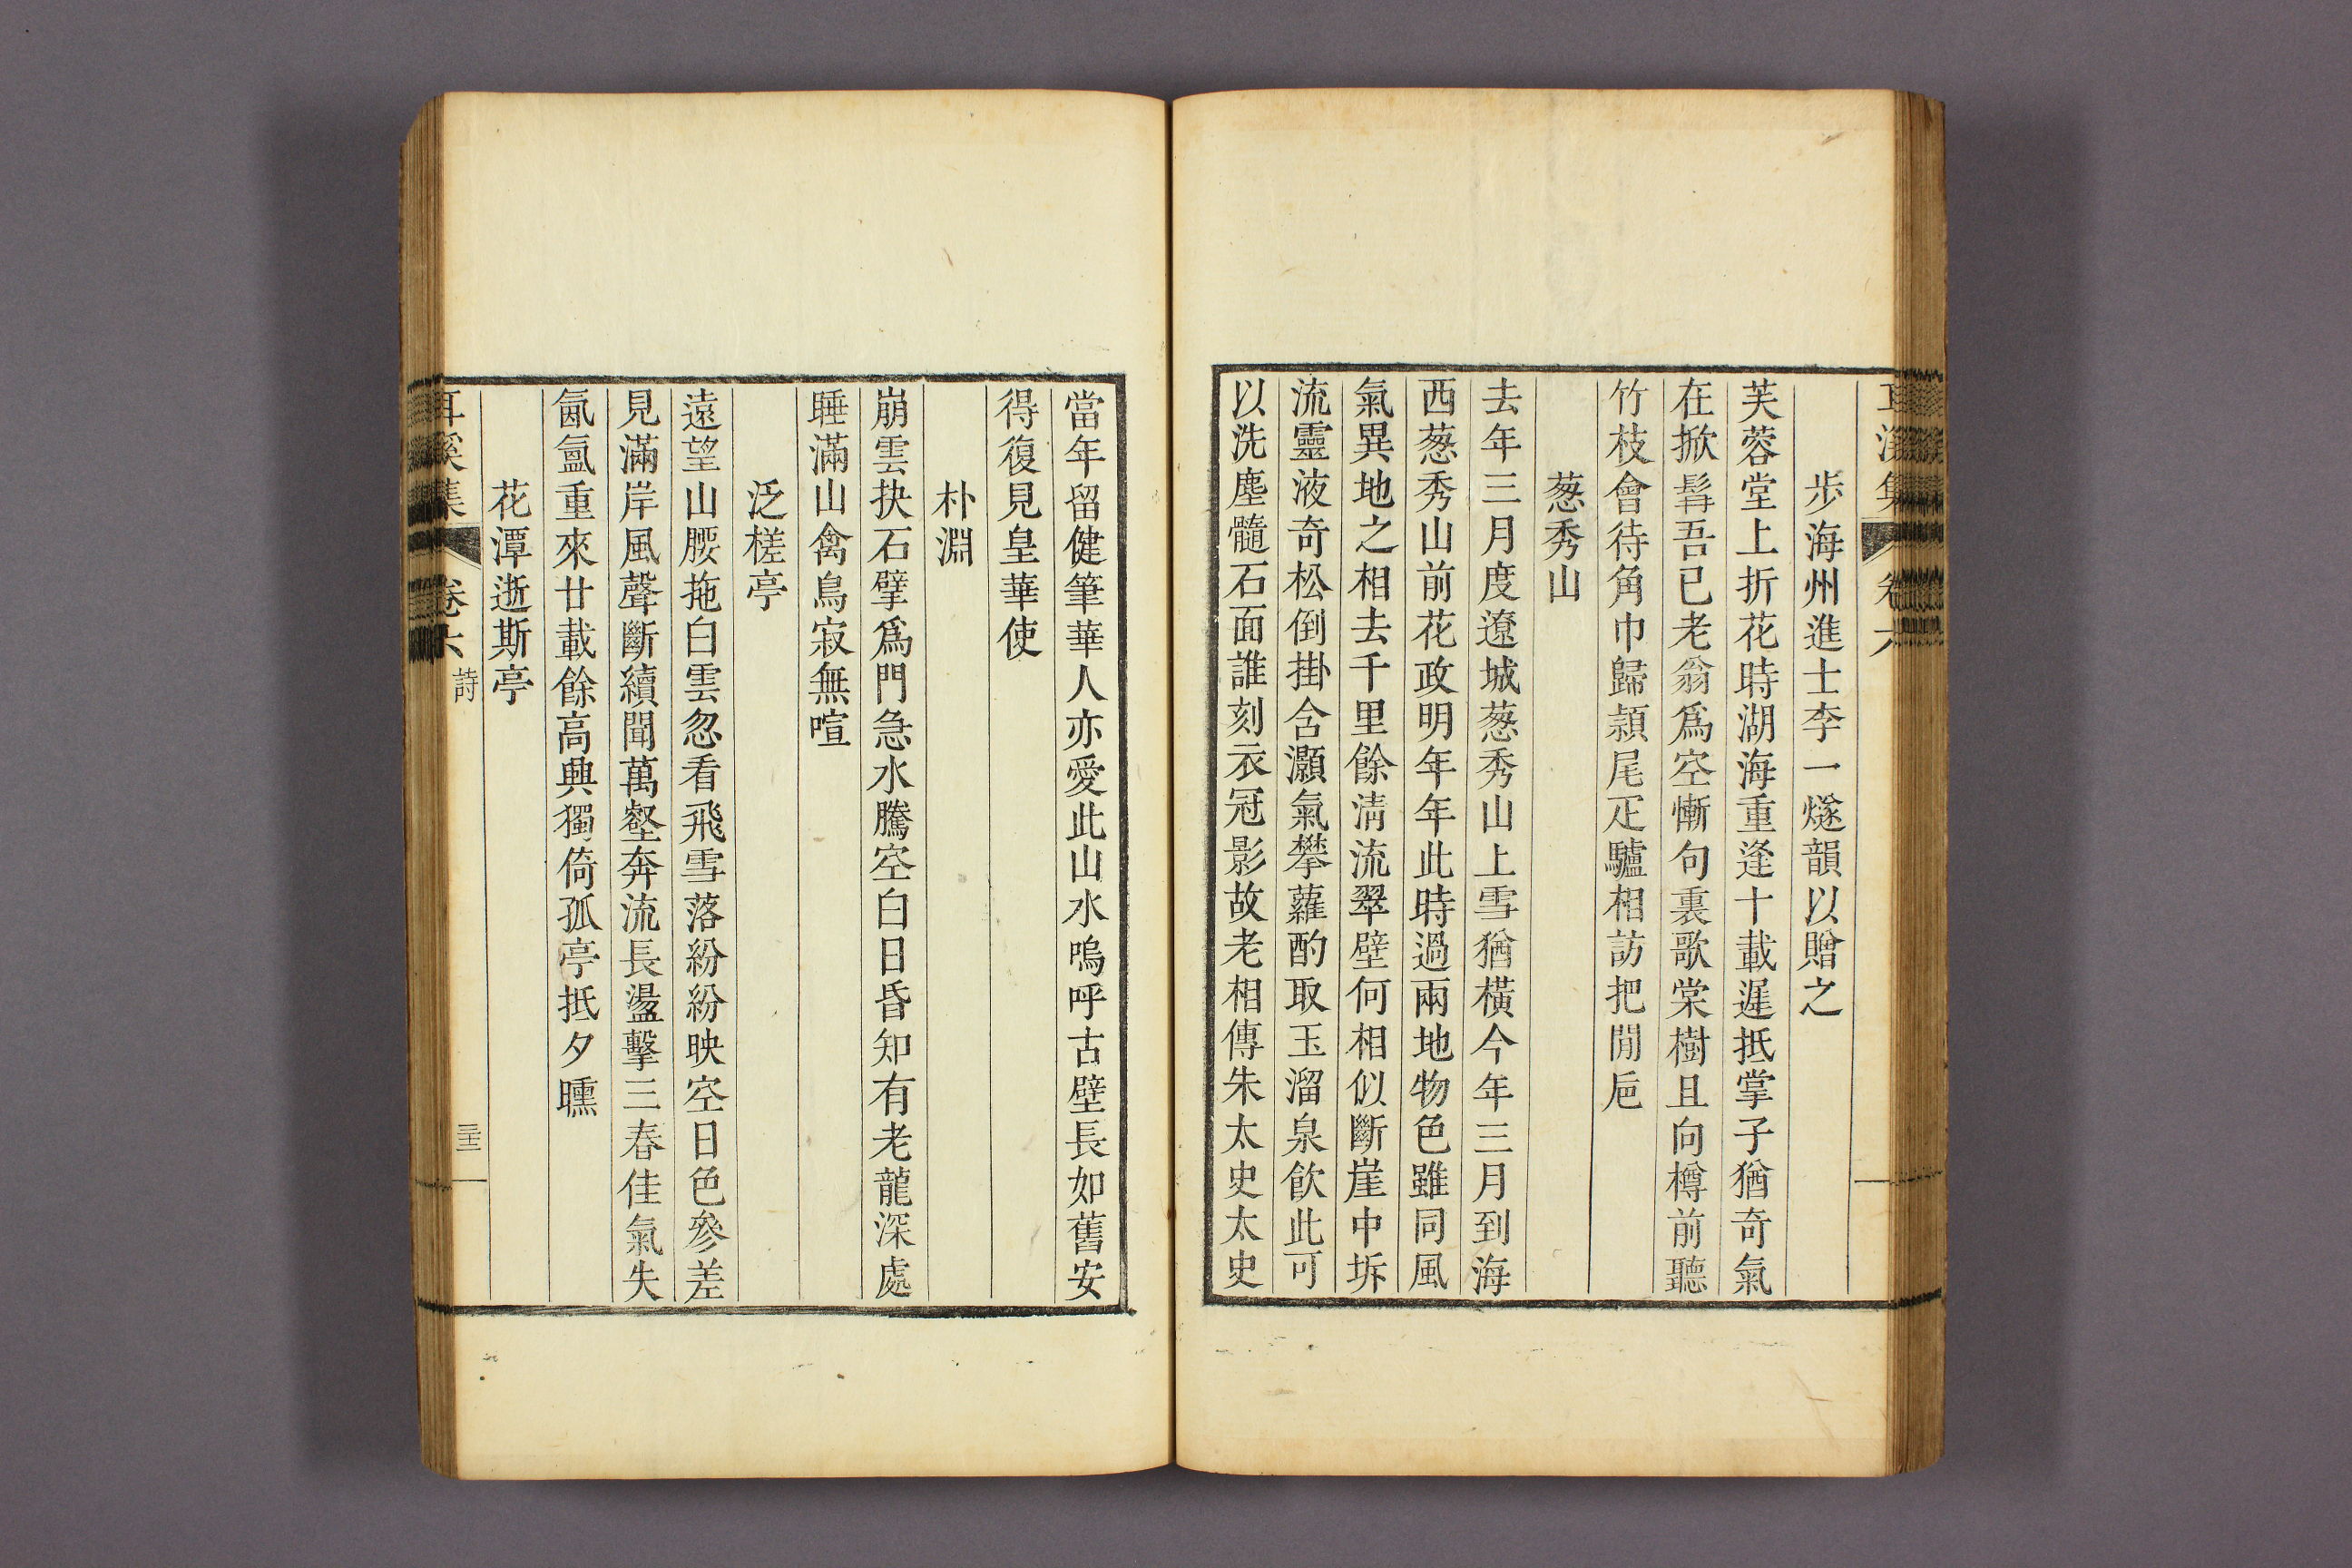 耳溪集 卷六
步海州進士李一燧韻以贈之
芙蓉堂上折花時湖海重逢十載遲抵掌子猶奇氣
在掀髯吾已老翁爲空慚句裏歌棠樹且向樽前聽
竹枝會待角巾歸潁尾疋驢相訪把閒巵
葱秀山
去年三月度遼城葱秀山上雪猶橫今年三月到海
西葱秀山前花政明年年此時過兩地物色雖同風
氣異地之相去千里餘淸流翠壁何相似斷崖中坼
流靈液奇松倒掛含灝氣攀蘿酌取玉溜泉飮此可
以洗塵髓石面誰刻衣冠影故老相傳朱太史太史
當年留健筆華人亦愛此山水嗚呼古壁長如舊安
得復見皇華使
朴淵
崩雲抉石擘爲門急水騰空白日昏知有老龍深處
睡滿山禽鳥寂無喧
泛槎亭
遠望山腰拖白雲忽看飛雪落紛紛映空日色參差
見滿岸風聲斷續聞萬壑奔流長盪擊三春佳氣失
氤氳重來廿載餘高興獨倚孤亭抵夕曛
花潭逝斯亭
耳溪集 卷六 詩